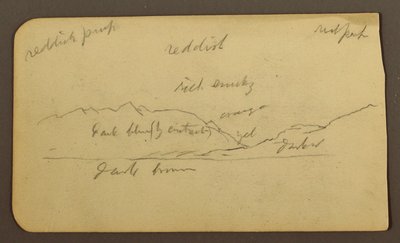 reddish pink
reddish
red pink
rich smoky
orange
Dark blue (by contrast)
yel
Darker
Dark brown